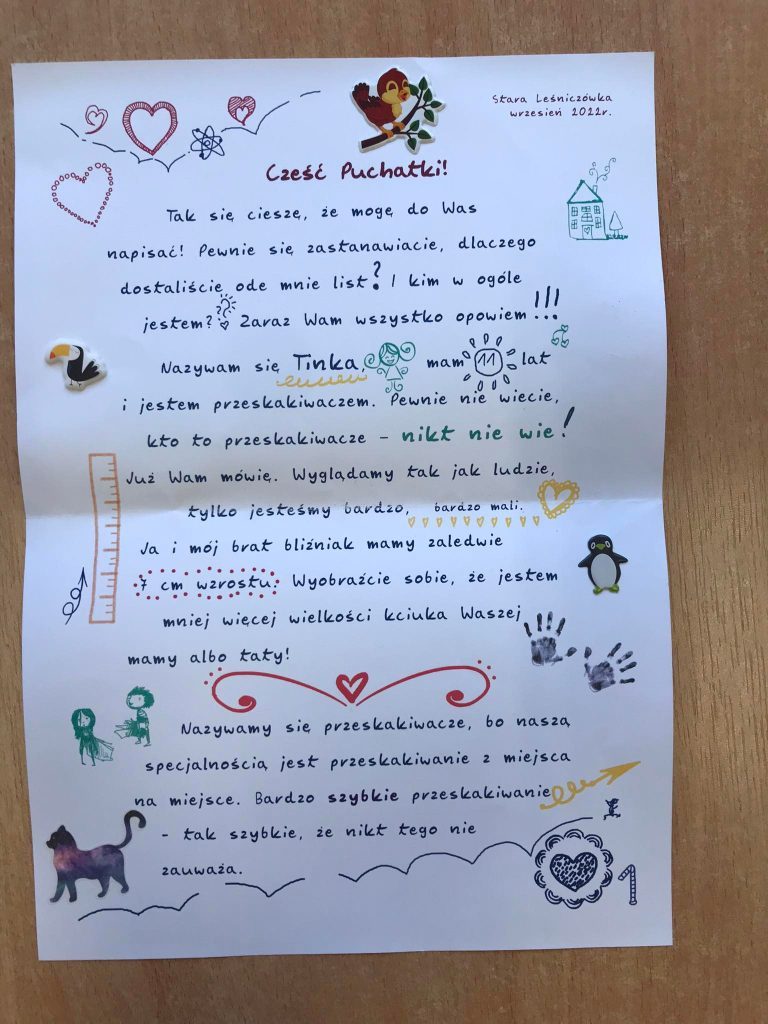 Stara Leśniczówka
wrzesień 2022r.
Cześć Puchatki!
Tak się cieszę, że mogę do Was
napisać! Pewnie się zastanawiacie, dlaczego
dostaliście ode mnie list? I kim w ogóle
jestem? Zaraz Wam wszystko opowiem!!!
Nazywam się Tinka, mam 11 lat
i jestem przeskakiwaczem. Pewnie nie wiecie,
kto to przeskakiwacze - nikt nie wie!
Już Wam mówię. Wyglądamy tak jak ludzie,
tylko jesteśmy bardzo, bardzo mali.
Ja i mój brat bliźniak mamy zaledwie
7 cm wzrostu. Wyobraźcie sobie, że jestem
mniej więcej wielkości kciuka Waszej
mamy albo taty!
Nazywamy się przeskakiwacze, bo naszą
specjalnością jest przeskakiwanie z miejsca
na miejsce. Bardzo szybkie przeskakiwanie
- tak szybkie, że nikt tego nie
zauważa.
1